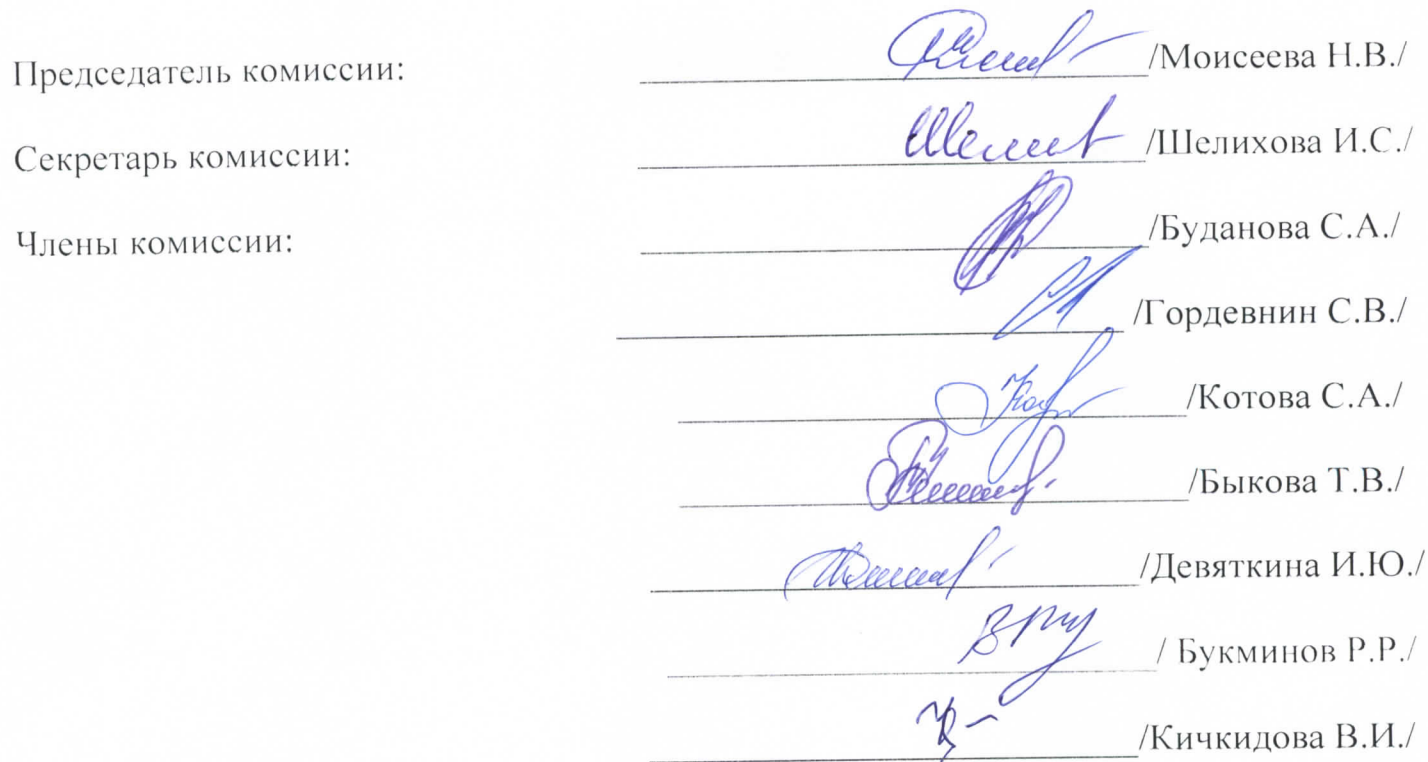 Председатель комиссии: /Моисеева Н.В./
Секретарь комиссии: /Шелихова И.С./
Члены комиссии: /Буданова С.А./
/Гордевнин С.В./
/Котова С.А./
/Быкова Т.В./
/Девяткина И.Ю./
/ Букминов Р.Р./
/Кичкидова В.И./